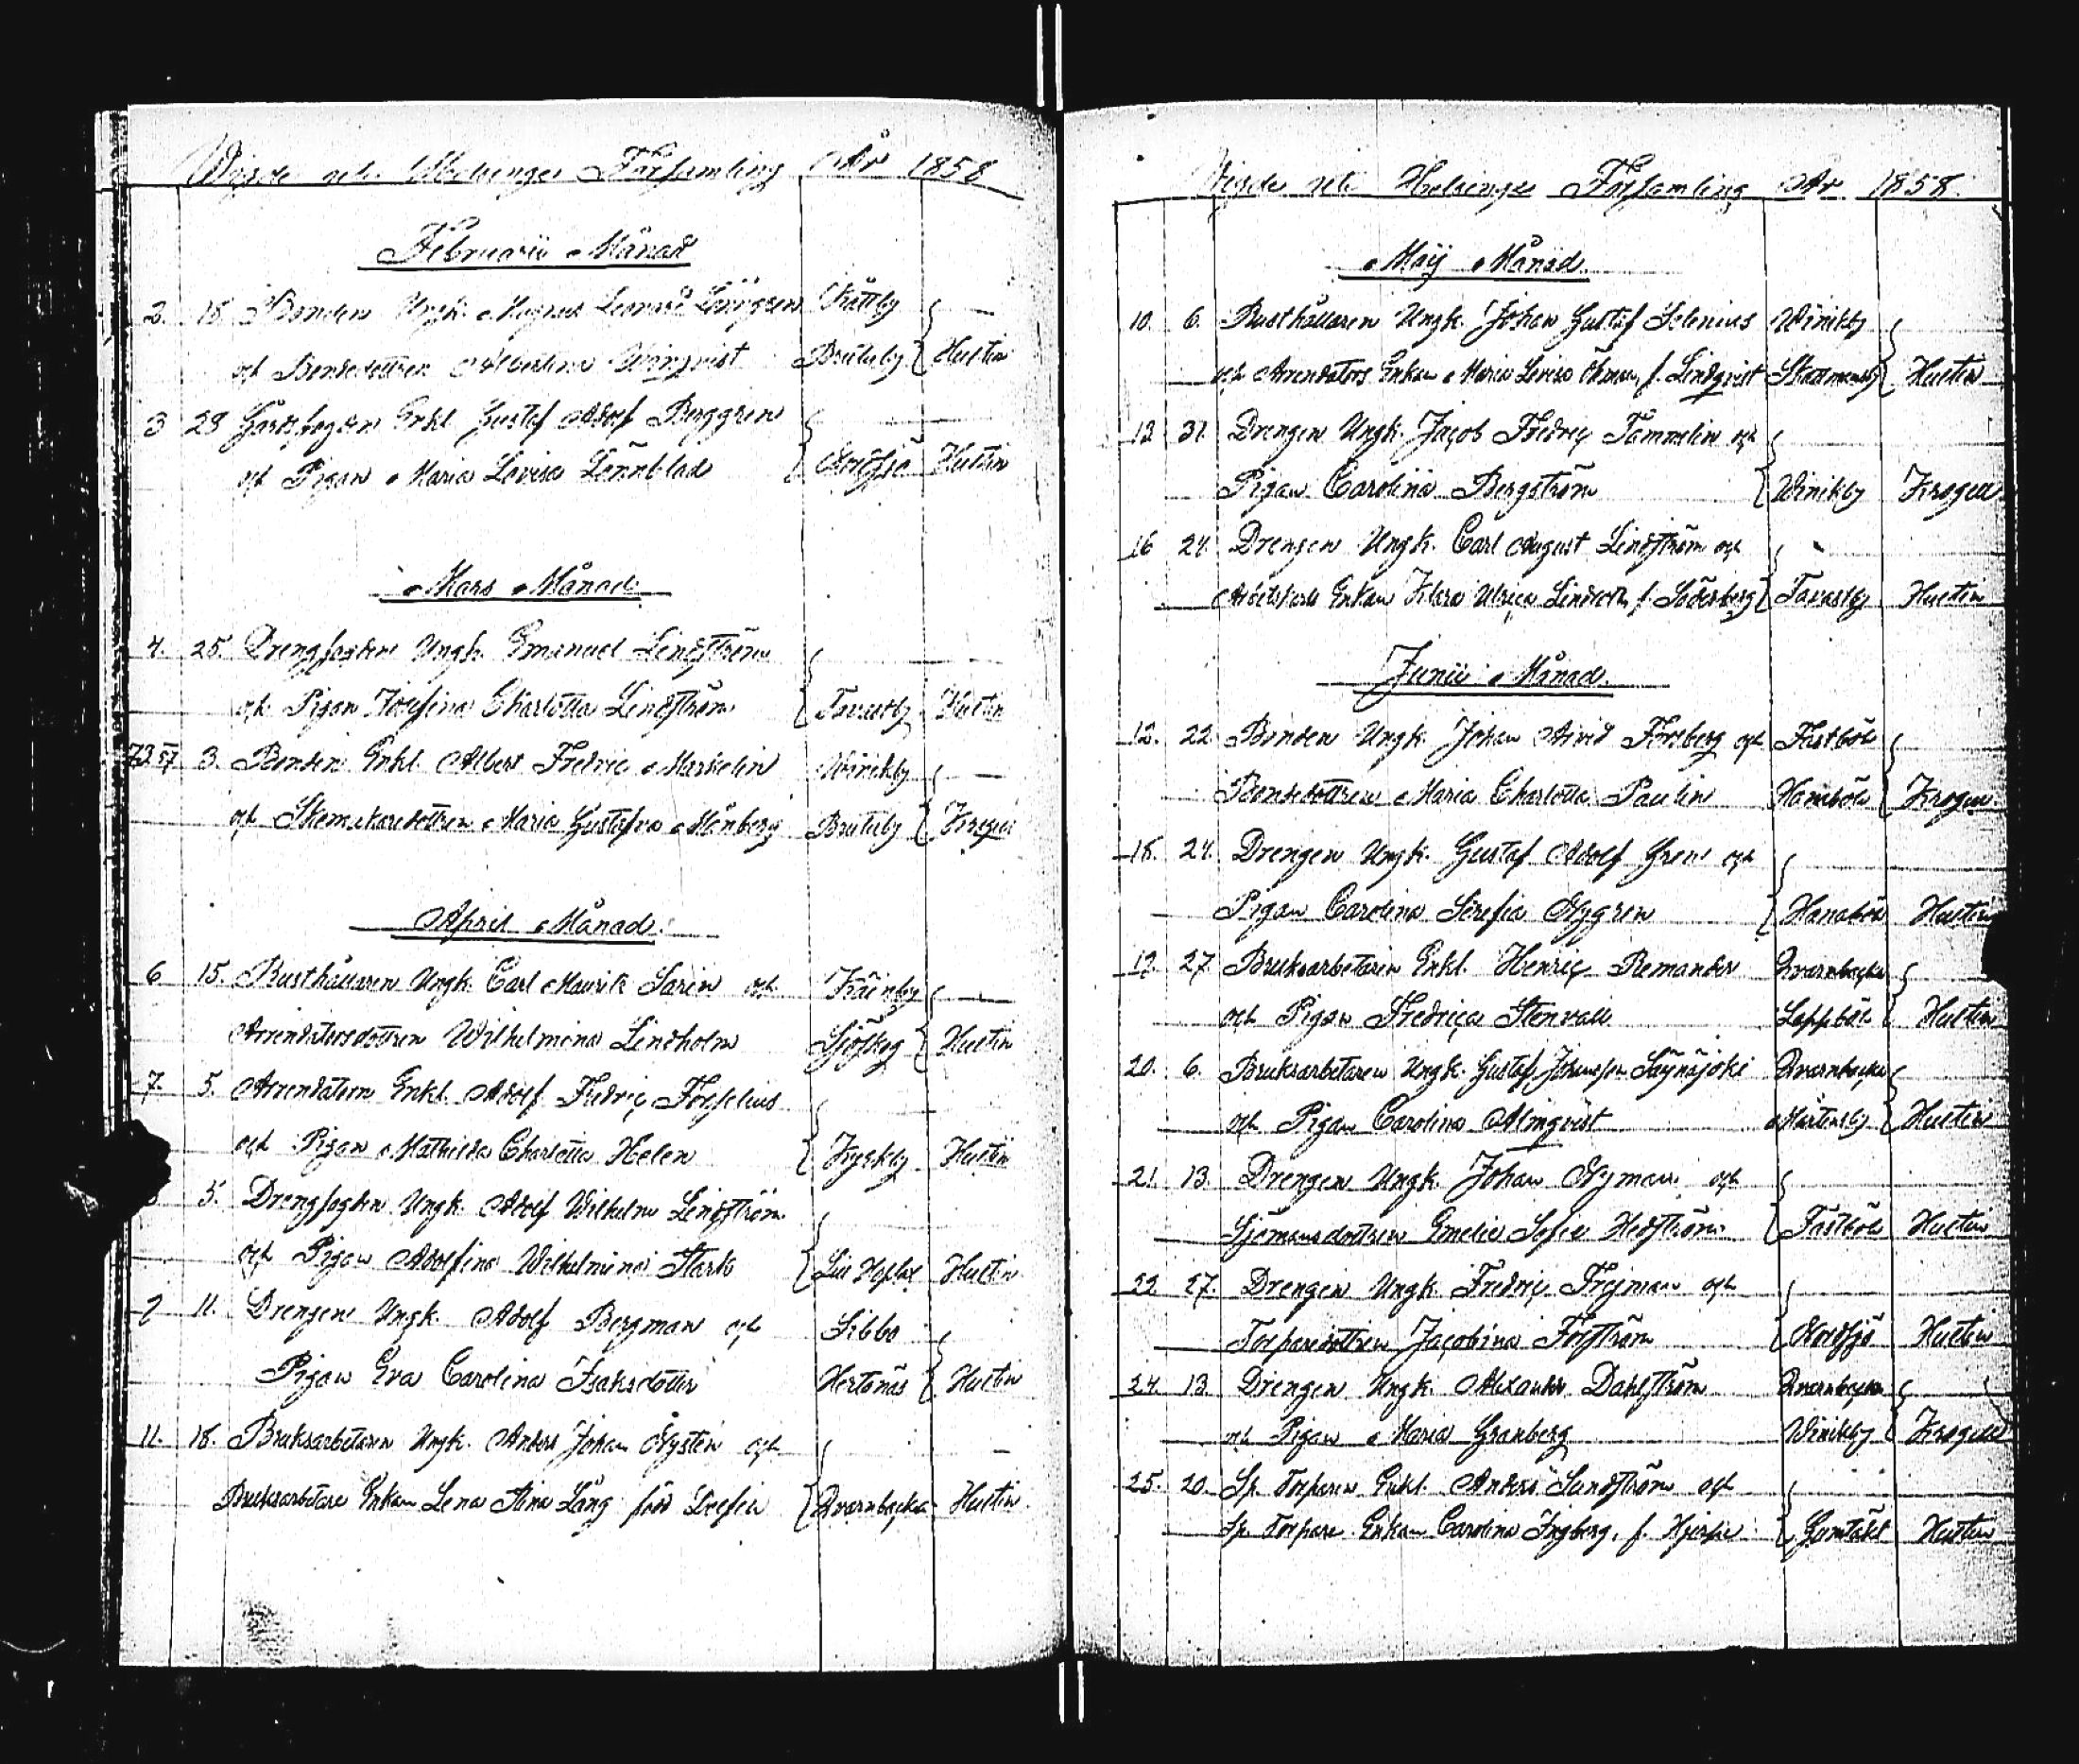 Wigde uti Helsinge Församling År 1858
Februarii Månad
2. 18. Bonden Ungk. Magnus Leonard Löfgren
och Bondedottren Albertina Winqvist Brutuby Hultin
3 28 Gårdsfogden Enkl. Gustaf Adolf Berggren
och Pigan Maria Lovisa Lönnblad Nordsjö Hultin
Mars Månad
4. 25. Drengfogden Ungk. Emanuel Lindström
och Pigan Josefina Charlotta Lindström Tavastby Hultin
73.57 3. Bonden Enkl. Albert Fredric Markelin Winikby
och Maria Gustafva Månberg Brutuby Krogell
April Månad
6 15. Rusthållaren Ungk. Carl Maurits Sarin och
Arrendatorsdottren Wilhelmina Lindholm Sjöskog Hultin
7. 5. Arrendatorn Enkl. Adolf Fredric Forselius
och Pigan Mathilda Charlotta Helen Hultin
5. Drengfogden Ungk. Adolf Wilhelm Lindström
och Pigan Adolfina Wilhelmina Stark Lill Hoplax Hultin
9 11. Drengen Ungk. Adolf Bergman och Sibbo
Pigan Eva Carolina Isaksdotter Hertonäs Hultin
11. 18. Bruksarbetaren Ungk. Anders Johan Nysten och
Bruksarbetare Enkan Lena Stina Lång född Qvarnbacka Hultin
Wigde uti Helsinge Församling År 1858.
Maij Månad.
10. 6. Rusthållaren Ungk. Johan Gustaf Selenius Winikby
och Arrendators Enkan Maria Lovisa Öhman f. Lindqvist Hultin
13 31. Drengen Ungk. Jacob Fredric Tammelin och
Pigan Carolina Bergström Winikby Krogell
16 24. Drengen Ungk. Carl August Lindström och
Arbetskarls Enkan Klara Ulrica Lindroth f. Söderberg Tavastby Hultin
Junii Månad.
12. 22. Bonden Ungk. Johan Arvid Forsberg och Fastböle
Bondedottren Maria Charlotta Paulin Hanaböle Krogell
18. 24. Drengen Ungk. Gustaf Adolf Gren och
Pigan Carolina Serafia Nygren Hanaböle Hultin
19. 27 Bruksarbetaren Enkl. Henric Remander Qvarnbacka
och Pigan Fredrica Stenvall Lappböle Hultin
20. 6. Bruksarbetaren Ungk. Gustaf Johansson Säynäjoki Qvarnbacka
och Pigan Carolina Almqvist Mårtensby Hultin
21. 13. Drengen Ungk. Johan Nyman och
Sjömansdottren Emelie Sofia Hedström Fastböle Hultin
22 27. Drengen Ungk. Fredric Frejman och
Torparedottren Jacobina Forsström Nordsjö Hultin
24. 13. Drengen Ungk. Alexander Dahlström Qvarnbacka
och Pigan Maria Granberg Winikby Krogell
25. 20. Sp. Torparen Enkl. Anders Sundström och
Sp. Torpare Enkan Carolina Ingberg, f. Gumtäkt Hultin